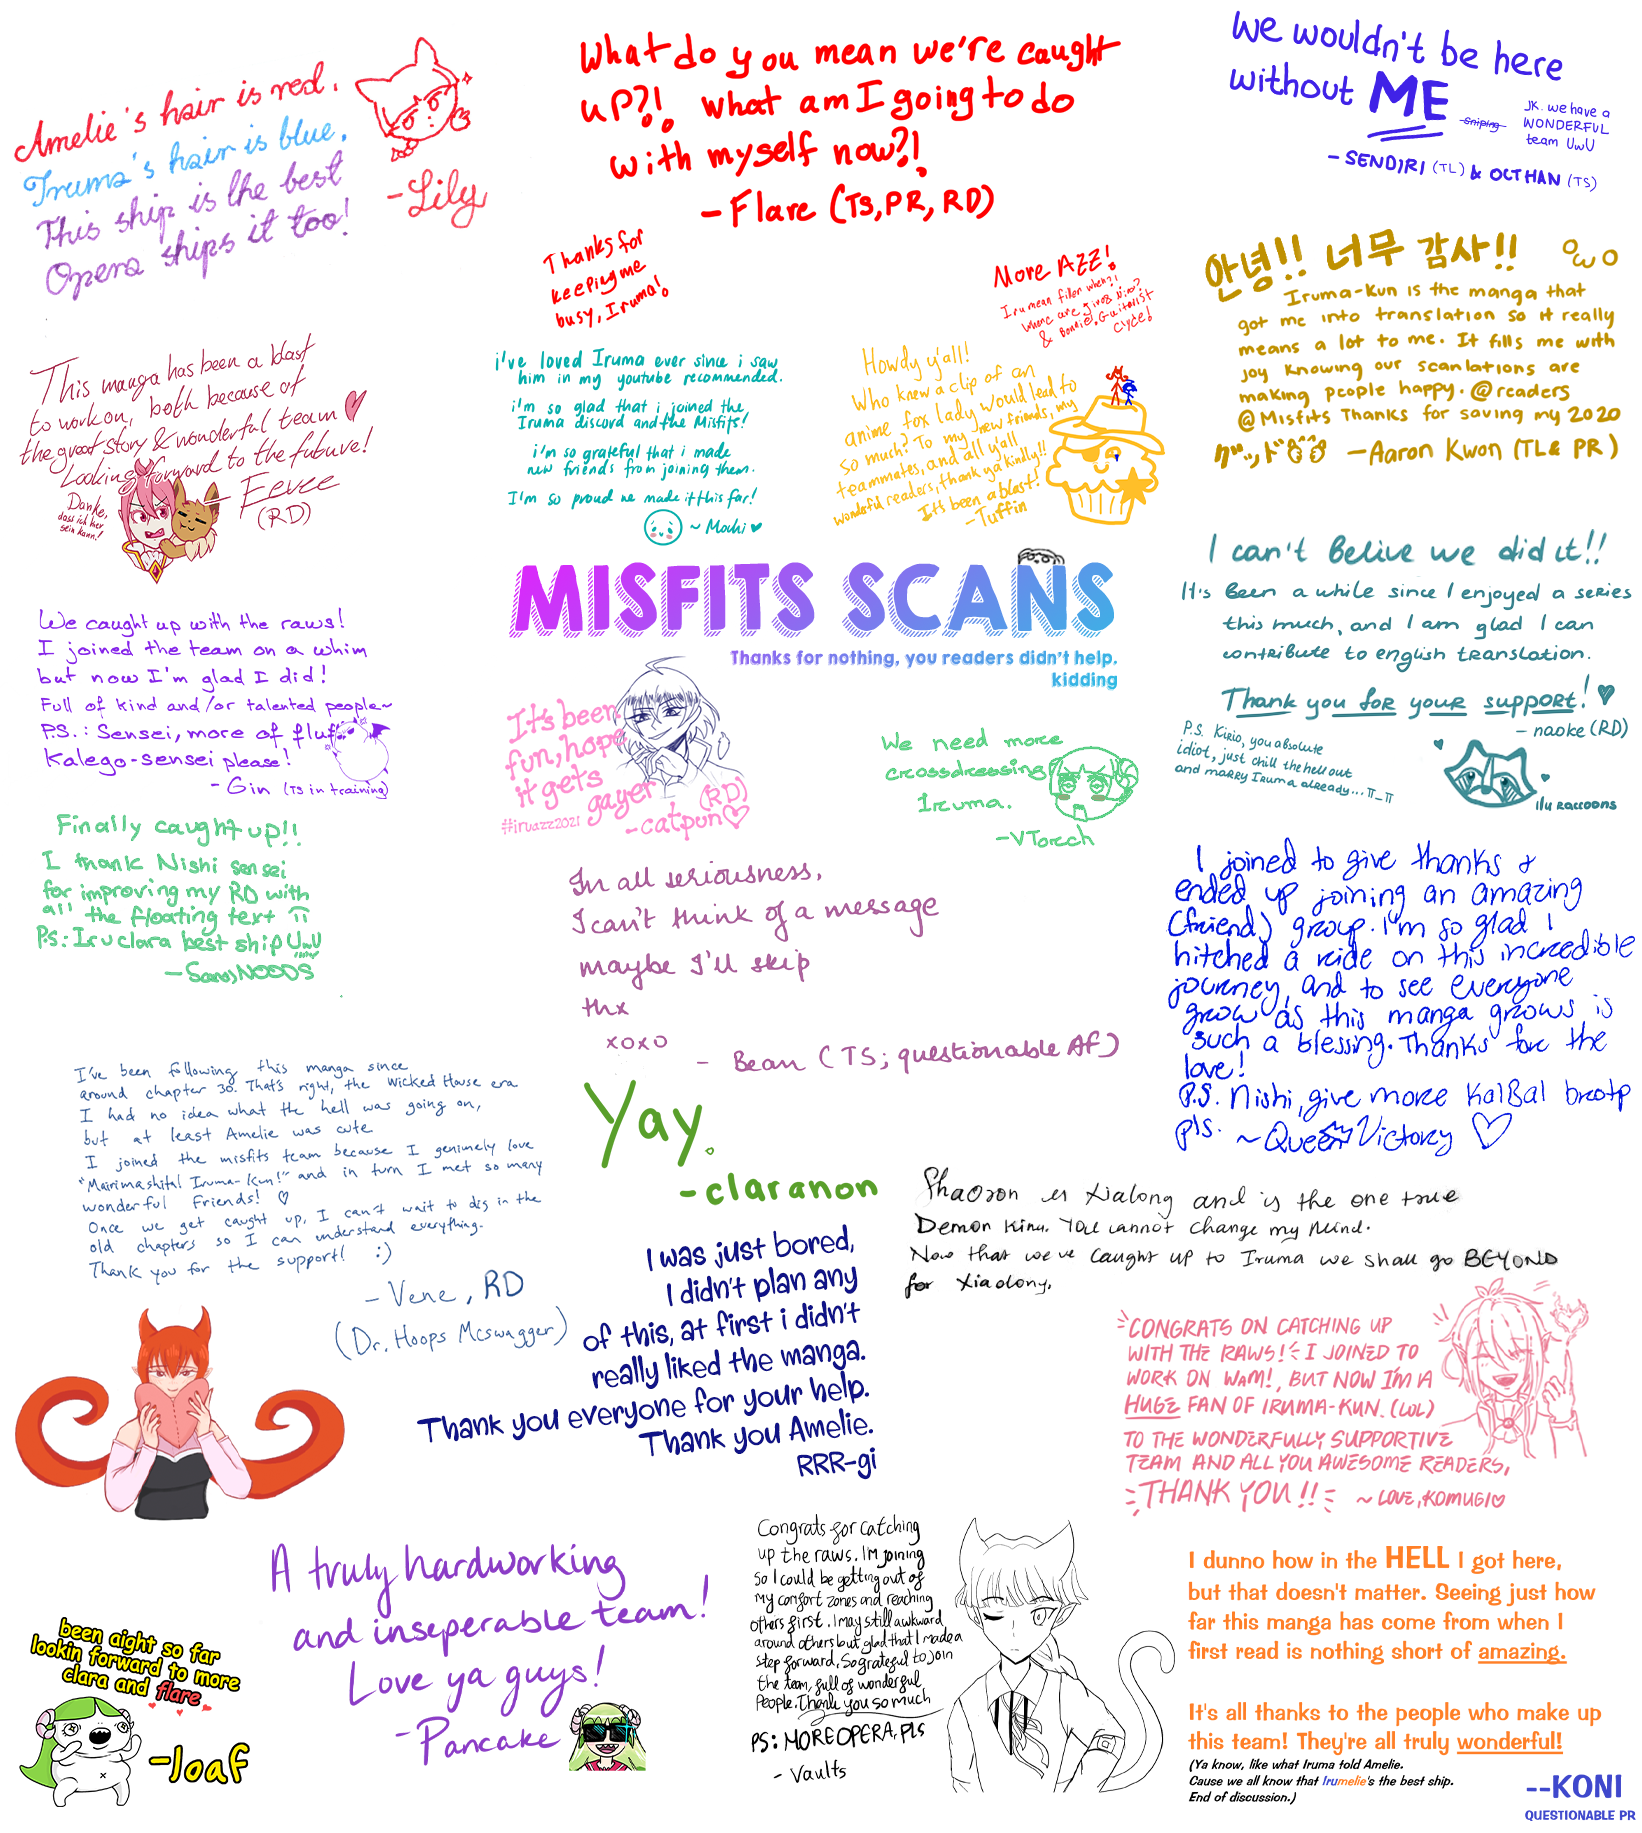 Amelie's hair is red.
Iruma's hair is blue.
This ship is the best
Opera ships it too!
-Lily
What do you mean we're caught
up?!! what am I going to do
with myself now?!
-Flare (TS, PR, RD)
We wouldn't be here
without ME
sniping
JK. we have a
WONDERFUL
team UwU
-SENDIRI (TL) & OCTHAN (TS)
Thanks for
keeping me
busy, Iruma!
More AZZ!
Iru mean filler when?!
Where are giver Nico?
& Bonnie, Guitarist
Clyde!
안녕!! 너무 감사!! OwO
Iruma-Kun is the manga that
got me into translation so it really
means a lot to me. It fills me with
joy knowing our scanlations are
making people happy. @readers
@Misfits Thanks for saving my 2020
-Aaron Kwon (TL & PR)
This manga has been a blast
to work on, both because of
the great story & wonderful team
Looking forward to the future!
- Eevee
(RD)
Danke,
dass ich hier
sein kann!
i've loved Iruma ever since i saw
him in my youtube recommended.
i'm so glad that i joined the
Iruma discord and the Misfits!
i'm so grateful that i made
new friends from joining them.
I'm so proud we made it this far!
~ Mochi ♥
Howdy y'all!
Who knew a clip of an
anime fox lady would lead to
so much? To my new friends, my
teammates, and all y'all
wonderful readers, thank ya kindly!!
It's been a blast!
-Tuffin
I can't Belive we did it!!
It's Been a while since I enjoyed a series
this much, and I am glad I can
contribute to english translation.
Thank you for your support! ♥
- naoke (RD)
P.S. Kirio, you absolute
idiot, just chill the hell out
and marry Iruma already... π_π
ilu raccoons
MISFITS SCANS
Thanks for nothing, you readers didn't help.
kidding
We caught up with the raws!
I joined the team on a whim
but now I'm glad I did!
Full of kind and/or talented people~
P.S.: Sensei, more of fluff
Kalego-sensei please!
- Gin (TS in training)
It's been
fun, hope
it gets
gayer
#iruazz2021
-catpun♡
(RD)
We need more
crossdressing
Iruma.
-VTorch
Finally caught up!!
I thank Nishi sensei
for improving my RD with
all the floating text π
P.S: Iruclara best ship UwU
-SansyNOODS
In all seriousness,
I can't think of a message
maybe I'll skip
thx
xoxo
- Bean (TS; questionable AF)
I joined to give thanks &
ended up joining an amazing
(friend) group. I'm so glad I
hitched a ride on this incredible
journey, and to see everyone
grow as this manga grows is
such a blessing. Thanks for the
love!
P.S. Nishi, give more KalBal brotp
pls.
~Queen Victory ♡
I've been following this manga since
around chapter 30. That's right, the Wicked House era
I had no idea what the hell was going on,
but at least Amelie was cute
I joined the misfits team because I genuinely love
"Mairimashita! Iruma-kun!" and in turn I met so many
wonderful friends! ♡
Once we get caught up, I can't wait to dig in the
old chapters so I can understand everything.
Thank you for the support! :)
- Vene, RD
(Dr. Hoops McSwagger)
Yay.
-claranon
Shaoron is Xialong and is the one true
Demon King. You cannot change my mind.
Now that we've caught up to Iruma we shall go BEYOND
for Xiaolong.
I was just bored,
I didn't plan any
of this, at first i didn't
really liked the manga.
Thank you everyone for your help.
Thank you Amelie.
RRR-gi
CONGRATS ON CATCHING UP
WITH THE RAWS! I JOINED TO
WORK ON WAM!, BUT NOW I'M A
HUGE FAN OF IRUMA-KUN. (LOL)
TO THE WONDERFULLY SUPPORTIVE
TEAM AND ALL YOU AWESOME READERS,
THANK YOU!!
~ LOVE, KOMUGI♡
A truly hardworking
and inseperable team!
Love ya guys!
-Pancake
been aight so far
lookin forward to more
clara and flare
-loaf
Congrats for catching
up the raws. I'm joining
so I could be getting out of
my comfort zones and reaching
others first. I may still awkward
around others but glad that I made a
step forward. So grateful to join
the team, full of wonderful
People. Thank you so much
PS: MORE OPERA, PLS
- Vaults
I dunno how in the HELL I got here,
but that doesn't matter. Seeing just how
far this manga has come from when I
first read is nothing short of amazing.
It's all thanks to the people who make up
this team! They're all truly wonderful!
(Ya know, like what Iruma told Amelie.
Cause we all know that Irumelie's the best ship.
End of discussion.)
--KONI
QUESTIONABLE PR